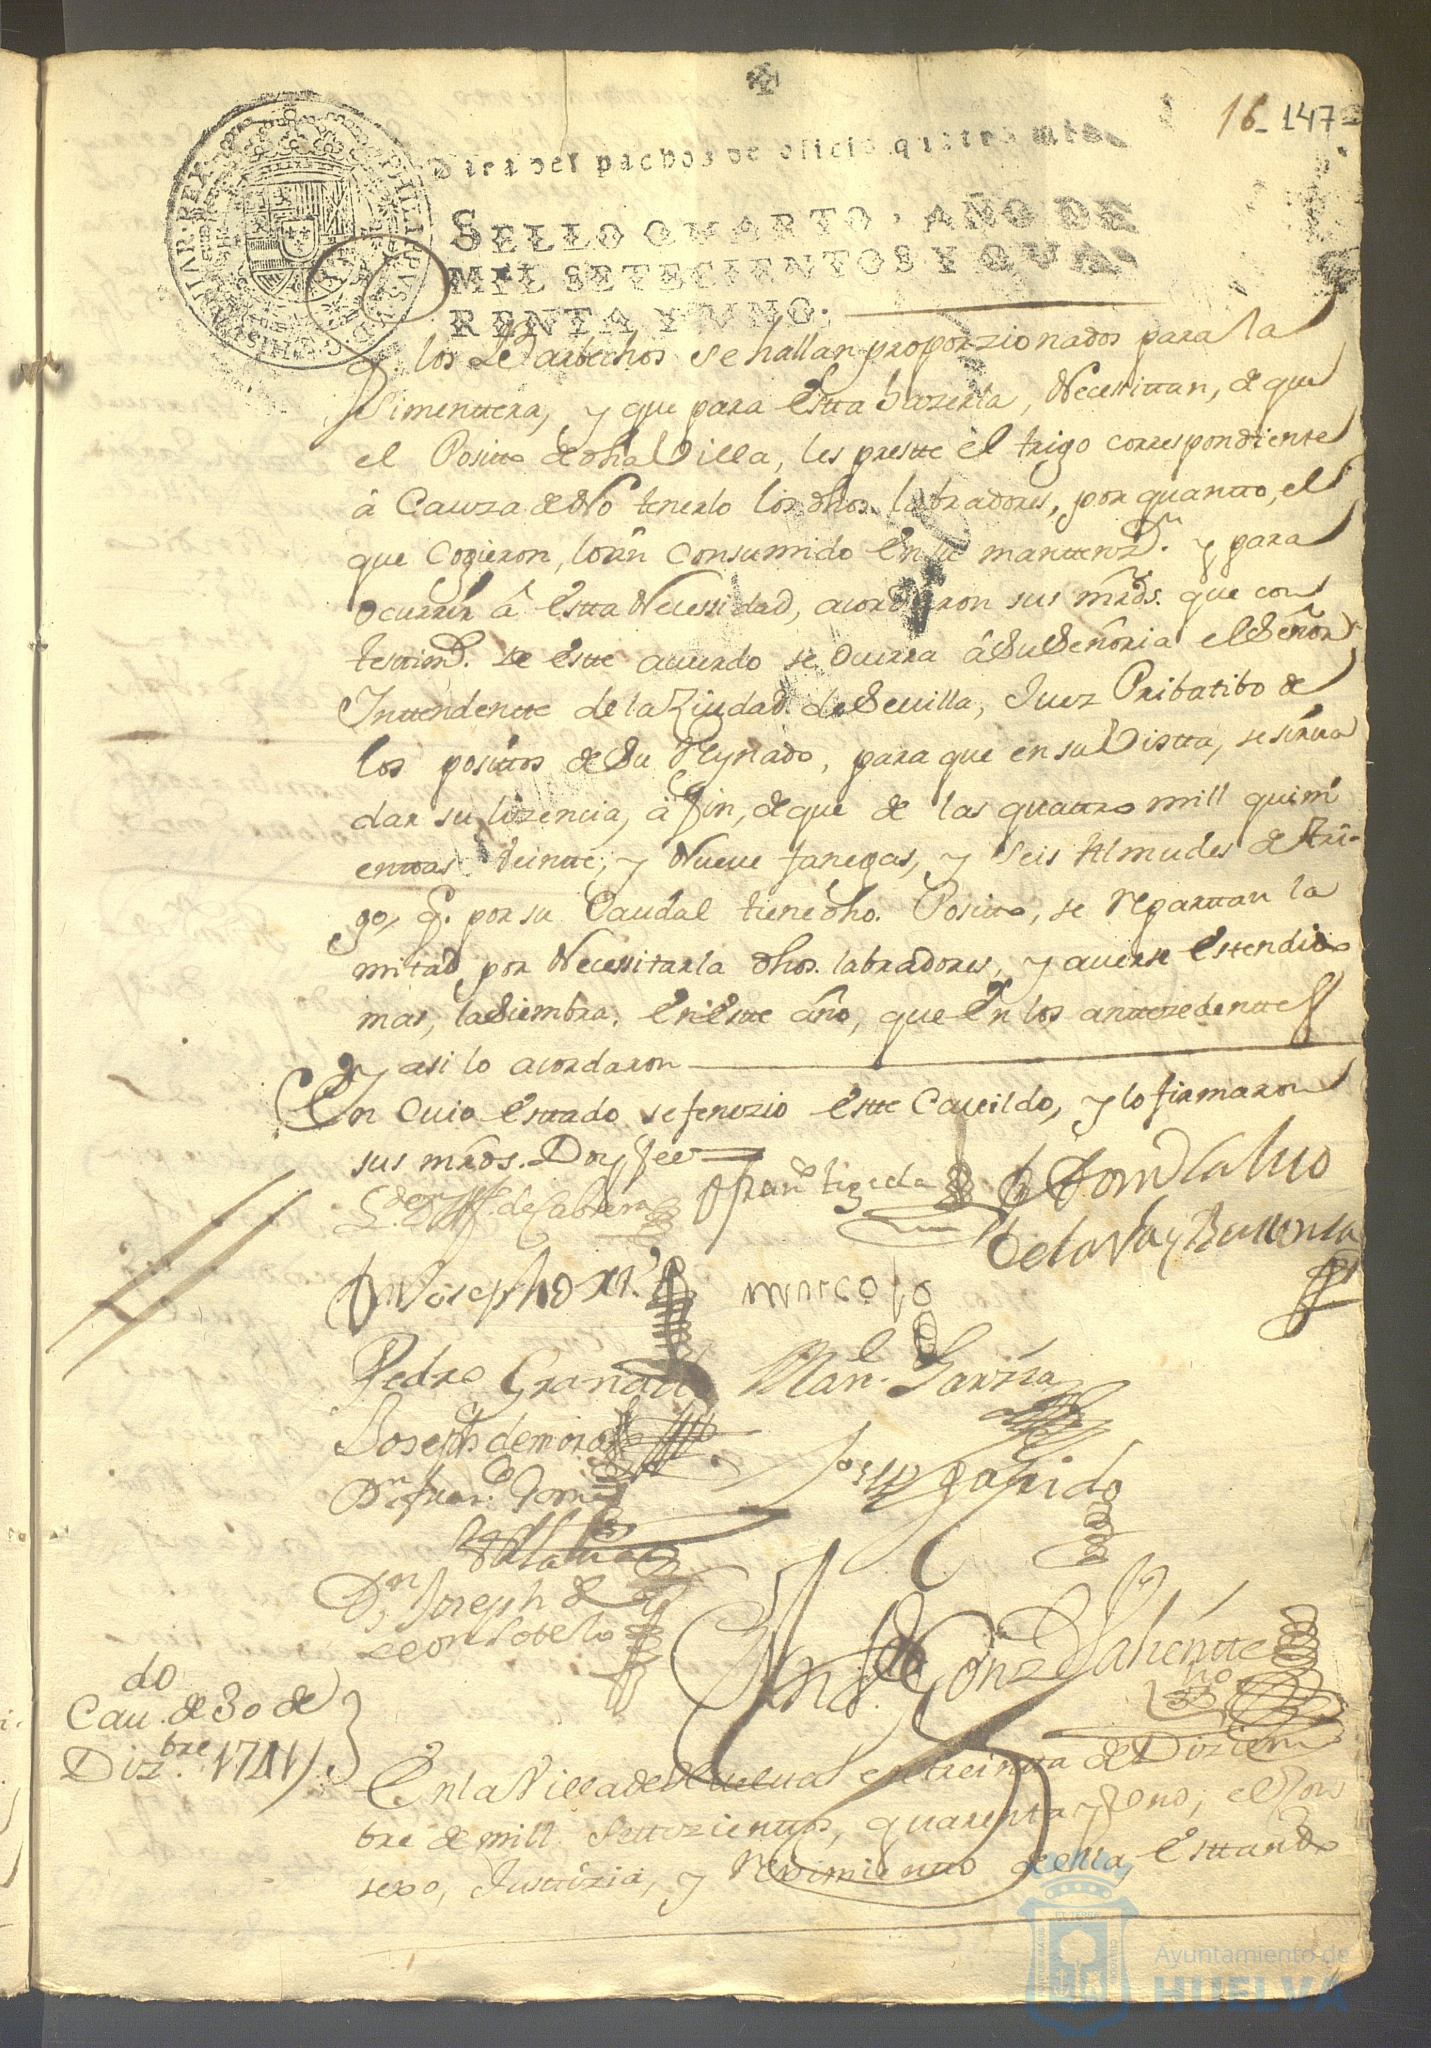 16_ 147
Para despachos de oficio quatro mrs
SELLO QVARTO, AÑO DE
MIL SETECIENTOS Y QVA
RENTA Y VNO.
PHILIPPVS V D G HISPANIAR REX
y los Barbechos se hallan proporzionados para la
Simenttera, y que para estta hazerla, Necesittan, de que
el Positto de dha Villa, les prestte el trigo correspondiente
â Cauza de No tenerlo los dhos. labradores, por quantto, el
que Cogieron, lo àn Consumido en su mantenzn. y para
Ocurrir â estta Necessidad, acordaron sus mrds. que con
testtimo. de este acuerdo se Ocurra â Su Señoria el Señor
Inttendentte de la Ziudad de Sevilla, Juez Pribatibo de
los posittos de Su Reynado, para que en su Vistta, se sirva
dar su lizencia, â fin, de que de las quattro mill quini
enttas veintte, y Nueve fanegas, y seis Almudes de tri-
go, q. por su Caudal tiene dho. Positto, se reparttan la
mitad, por Necessitarla dhos. labradores, y averse esttendido
mas, la Siembra, en estte año, que en los anttezedenttes
y asi lo acordaron
En Cuio esttado se fenezio estte Cavildo, y lo firmaron
sus mrds. Doy fee
de Cabrera
Franco. tigeda
Dn Joseph
marcos
Pedro Granado
Manl. Garzia
Joseph de mora
Josep garrido
Dn Juan. Gomez
Dn Joseph de
Leon Sotelo
Gonz
Cavdo. de 30 de
Dizbre. 1741
En la Villa de Huelva en treintta de Diziem
bre de mill settezienttos, quarenta y Uno, el Con
sexo, Justtizia, y Reximientto de ella, esttando
Ayuntamiento de
HUELVA